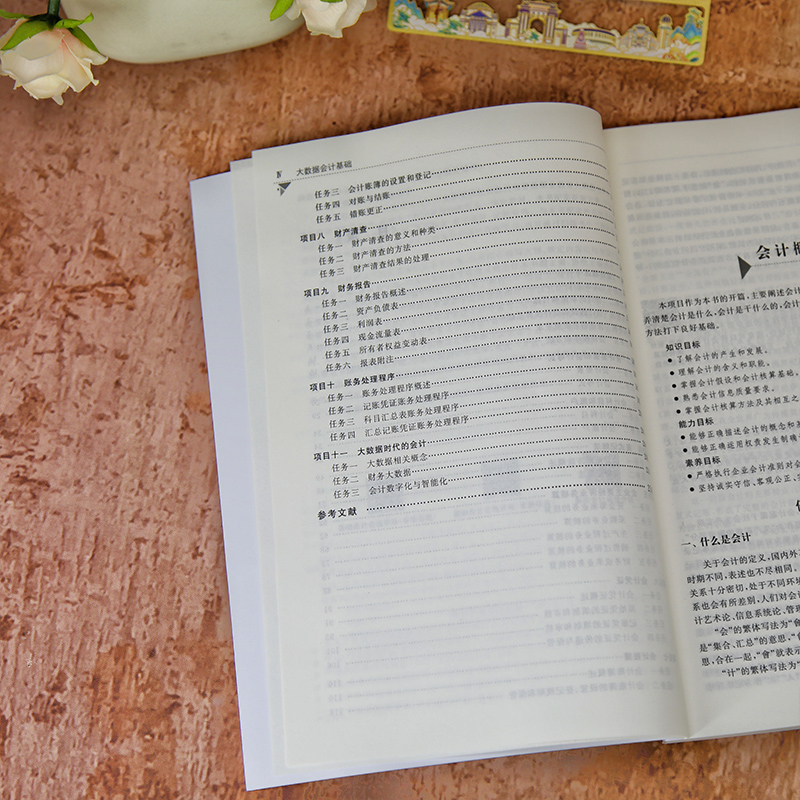 Ⅳ 大数据会计基础
任务三 会计账簿的设置和登记
任务四 对账与结账
任务五 错账更正
项目八 财产清查
任务一 财产清查的意义和种类
任务二 财产清查的方法
任务三 财产清查结果的处理
项目九 财务报告
任务一 财务报告概述
任务二 资产负债表
任务三 利润表
任务四 现金流量表
任务五 所有者权益变动表
任务六 报表附注
项目十 账务处理程序
任务一 账务处理程序概述
任务二 记账凭证账务处理程序
任务三 科目汇总表账务处理程序
任务四 汇总记账凭证账务处理程序
项目十一 大数据时代的会计
任务一 大数据相关概念
任务二 财务大数据
任务三 会计数字化与智能化
参考文献
会计概
本项目作为本书的开篇,主要阐述会计
弄清楚会计是什么,会计是干什么的,会计
方法打下良好基础。
知识目标
● 了解会计的产生和发展。
● 理解会计的含义和职能。
● 掌握会计假设和会计核算基础。
● 熟悉会计信息质量要求。
● 掌握会计核算方法及其相互之
能力目标
● 能够正确描述会计的概念和
● 能够正确运用权责发生制确
素养目标
● 严格执行企业会计准则对会
● 坚持诚实守信、客观公正、
一、什么是会计
关于会计的定义,国内外
时期不同,表述也不尽相同。
关系十分密切,处于不同环境
系也会有所差别,人们对会计
计艺术论、信息系统论、管理
“会”的繁体写法为“會
是“集合、汇总”的意思,“
思,合在一起,“會”就表示
“计”的繁体写法为“